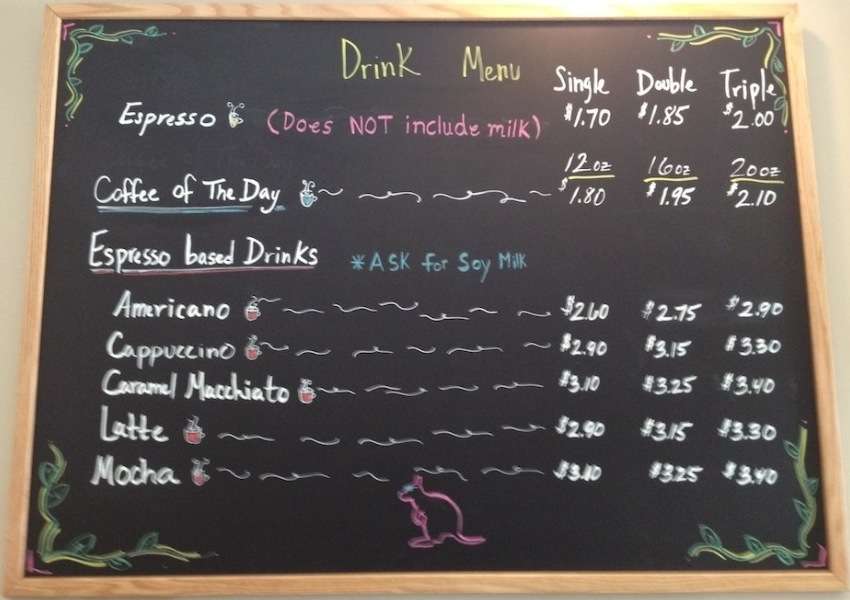 Drink Menu
Single Double Triple
Espresso (Does NOT include milk) $1.70 $1.85 $2.00
12oz 16oz 20oz
Coffee of The Day $1.80 $1.95 $2.10
Espresso based Drinks *ASK for Soy Milk
Americano $2.60 $2.75 $2.90
Cappuccino $2.90 $3.15 $3.30
Caramel Macchiato $3.10 $3.25 $3.40
Latte $2.90 $3.15 $3.30
Mocha $3.10 $3.25 $3.40